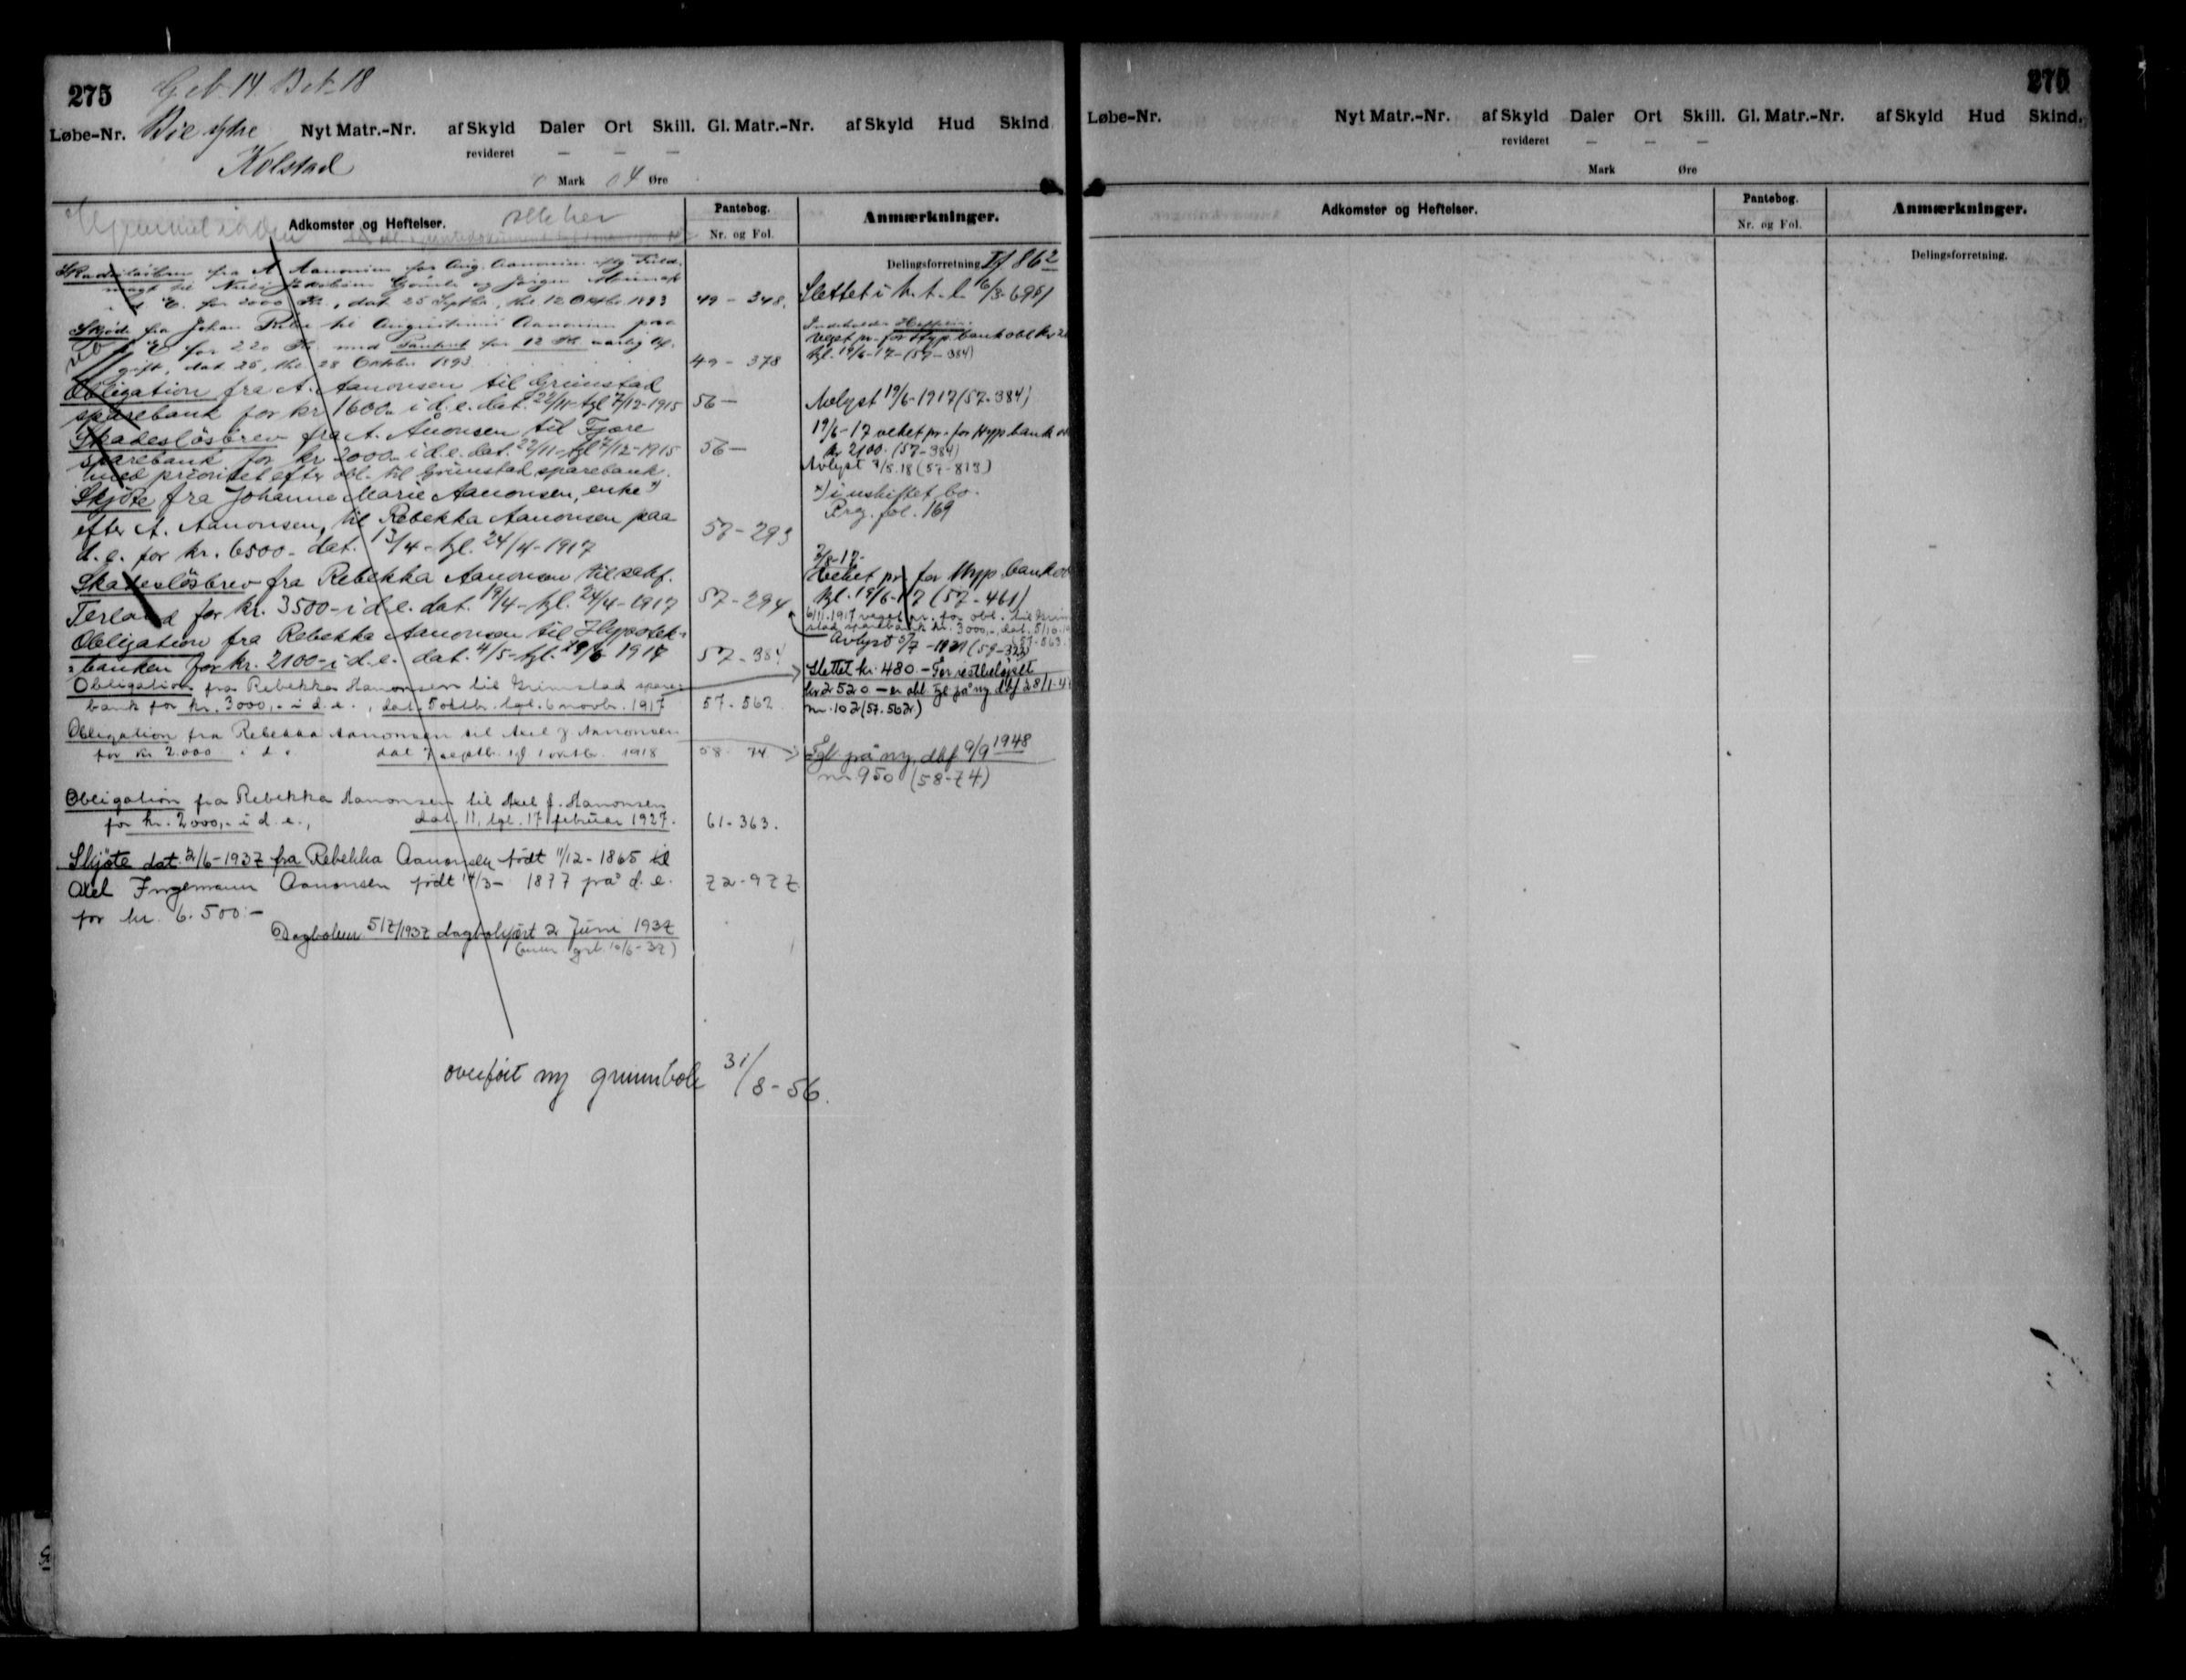 275 Gb. 14 Br. 18
Løbe-Nr. Bie Nyt Matr.-Nr. af Skyld Daler Ort Skill. Gl. Matr.-Nr. af Skyld Hud Skind
Kolstad revideret — — —
0 Mark 04 Øre
Adkomster og Heftelser.
Pantebog.
Nr. og Fol.
Anmærkninger.
Delingsforretning If 86²
fra A Aanonsen for Aug. Aanonsen
til og Jørgen
d. E. for 2000 Kr., dat 25 Septbr, thl 12 Oktbr 1893 49 - 348.
Slettet i h. t. l. 16/3-
Skjøde fra Johan til Augustinius Aanonsen paa
d. E for 220 Kr. med for 12 Kr aarlig Af-
gift, dat 25, thl. 28 Oktober 1893 49 - 378
Indeholder Heftelse.
veget pr. for Hyp.bank obl kr 21
tgl. 19/6-17-(57-384)
Obligation fra A. Aanonsen til Grimstad
sparebank for kr 1600.- i d.e. dat. 22/11- tgl 7/12-1915 56—
Avlyst 19/6-1917 (57-384)
Skadesløsbrev fra A. Aanonsen til Fjære
sparebank for kr 2000.- i d.e. dat. 22/11- tgl 7/12-1915 56—
med prioritet efter obl. til Grimstad sparebank.
19/6-17 veket pr. for Hyp bank
kr 2100. (57-384)
Avlyst 3/5.18 (57-813)
Skjøte fra Johanne Marie Aanonsen, enke x)
efter A. Aanonsen, til Rebekka Aanonsen paa
d.e. for kr. 6500.- dat. 13/4- tgl. 24/4-1917 57-293
x) i uskiftet bo.
Prg. fol. 169
Skadesløsbrev fra Rebekka Aanonsen til sakf.
Terland for kr. 3500- i d.e. dat. 19/4- tgl. 24/4-1917 57-294
7/8-17-
Veket pr. for Hyp. bank
tgl. 19/6-17 (57-461)
6/11.1917 veget pr. for obl. til Grim
stad sparebank kr. 3000,-, dat. 5/10.19
(57-563.
Avlyst 5/7-1921 (59-323)
Obligation fra Rebekka Aanonsen til Hypotek-
banken for kr. 2100- i d.e. dat. 4/5- tgl. 19/6 1917 57-384
Obligation fra Rebekka Aanonsen til Grimstad spare-
bank for kr. 3000,- i d.e., dat. 5 oktbr. tgl. 6 novbr. 1917 57-562
Slettet kr. 480.- For restbeløpet
kr 2520 - er obl. tgl på ny dbf 28/1-4
nr. 102 (57.562)
Obligation fra Rebekka Aanonsen til Axel J. Aanonsen
for kr 2.000 i d.e. dat 7 septb. tgl 1 oktbr. 1918 58- 74
Tgl på ny dbf 9/9 1948
nr 950 (58-74)
Obligation fra Rebekka Aanonsen til Axel J. Aanonsen
for kr. 2000,- i d.e., dat. 11, tgl. 17 februar 1927. 61-363.
Skjøte dat. 2/6-1937 fra Rebekka Aanonsen født 11/12-1865 til
Axel Ingemann Aanonsen født 14/3- 1877 på d.e. 72-977
for kr. 6.500.-
Dagboknr 517/1937 dagbokført 2 Juni 1937
overført ny grunnbok 31/8-56.
275
Løbe-Nr. Nyt Matr.-Nr. af Skyld Daler Ort Skill. Gl. Matr.-Nr. af Skyld Hud Skind.
revideret — — —
Mark Øre
Adkomster og Heftelser.
Pantebog.
Nr. og Fol.
Anmærkninger.
Delingsforretning.